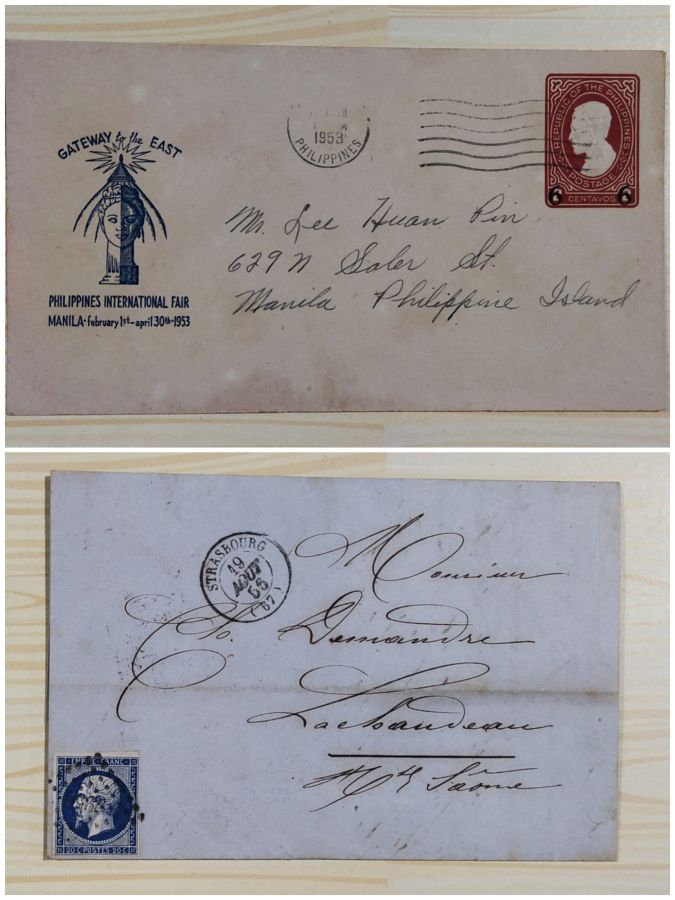 GATEWAY to the EAST
PHILIPPINES INTERNATIONAL FAIR
MANILA • february 1st – april 30th • 1953
1953
PHILIPPINES
REPUBLIC OF THE PHILIPPINES
POSTAGE
6 6
CENTAVOS
Mr. Lee Huan Pin
629 N Soler St.
Manila Philippine Island
STRASBOURG
19
AOUT
56
(67)
Monsieur
Demandre
Lachaudeau
Hte Saône
EMPIRE FRANC
20 C POSTES 20 C